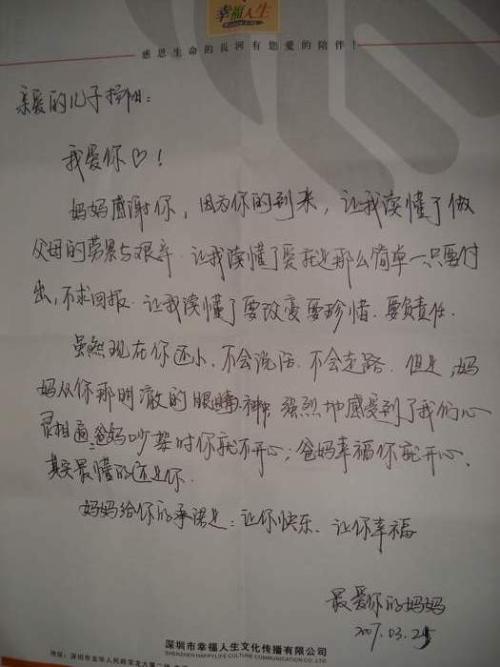 幸福人生
感恩生命的长河有您爱的陪伴！
亲爱的儿子
我爱你♡！
妈妈感谢你，因为你的到来，让我读懂了做
父母的劳累与艰辛．让我读懂了爱就是那么简单一只要付
出，不求回报．让我读懂了要改变要珍惜．要负责任．
虽然现在你还小．不会说话．不会走路．但是，妈
妈从你那明澈的眼睛、神，强烈地感受到了我们心
灵相通，爸妈吵架时你就不开心；爸妈幸福你就开心．
其实最懂的还是你．
妈妈给你的承诺是：让你快乐、让你幸福
最爱你的妈妈
2007.03.25
深圳市幸福人生文化传播有限公司
SHENZHEN HAPPYLIFE CULTURE COMMUNICATION CO.,LTD